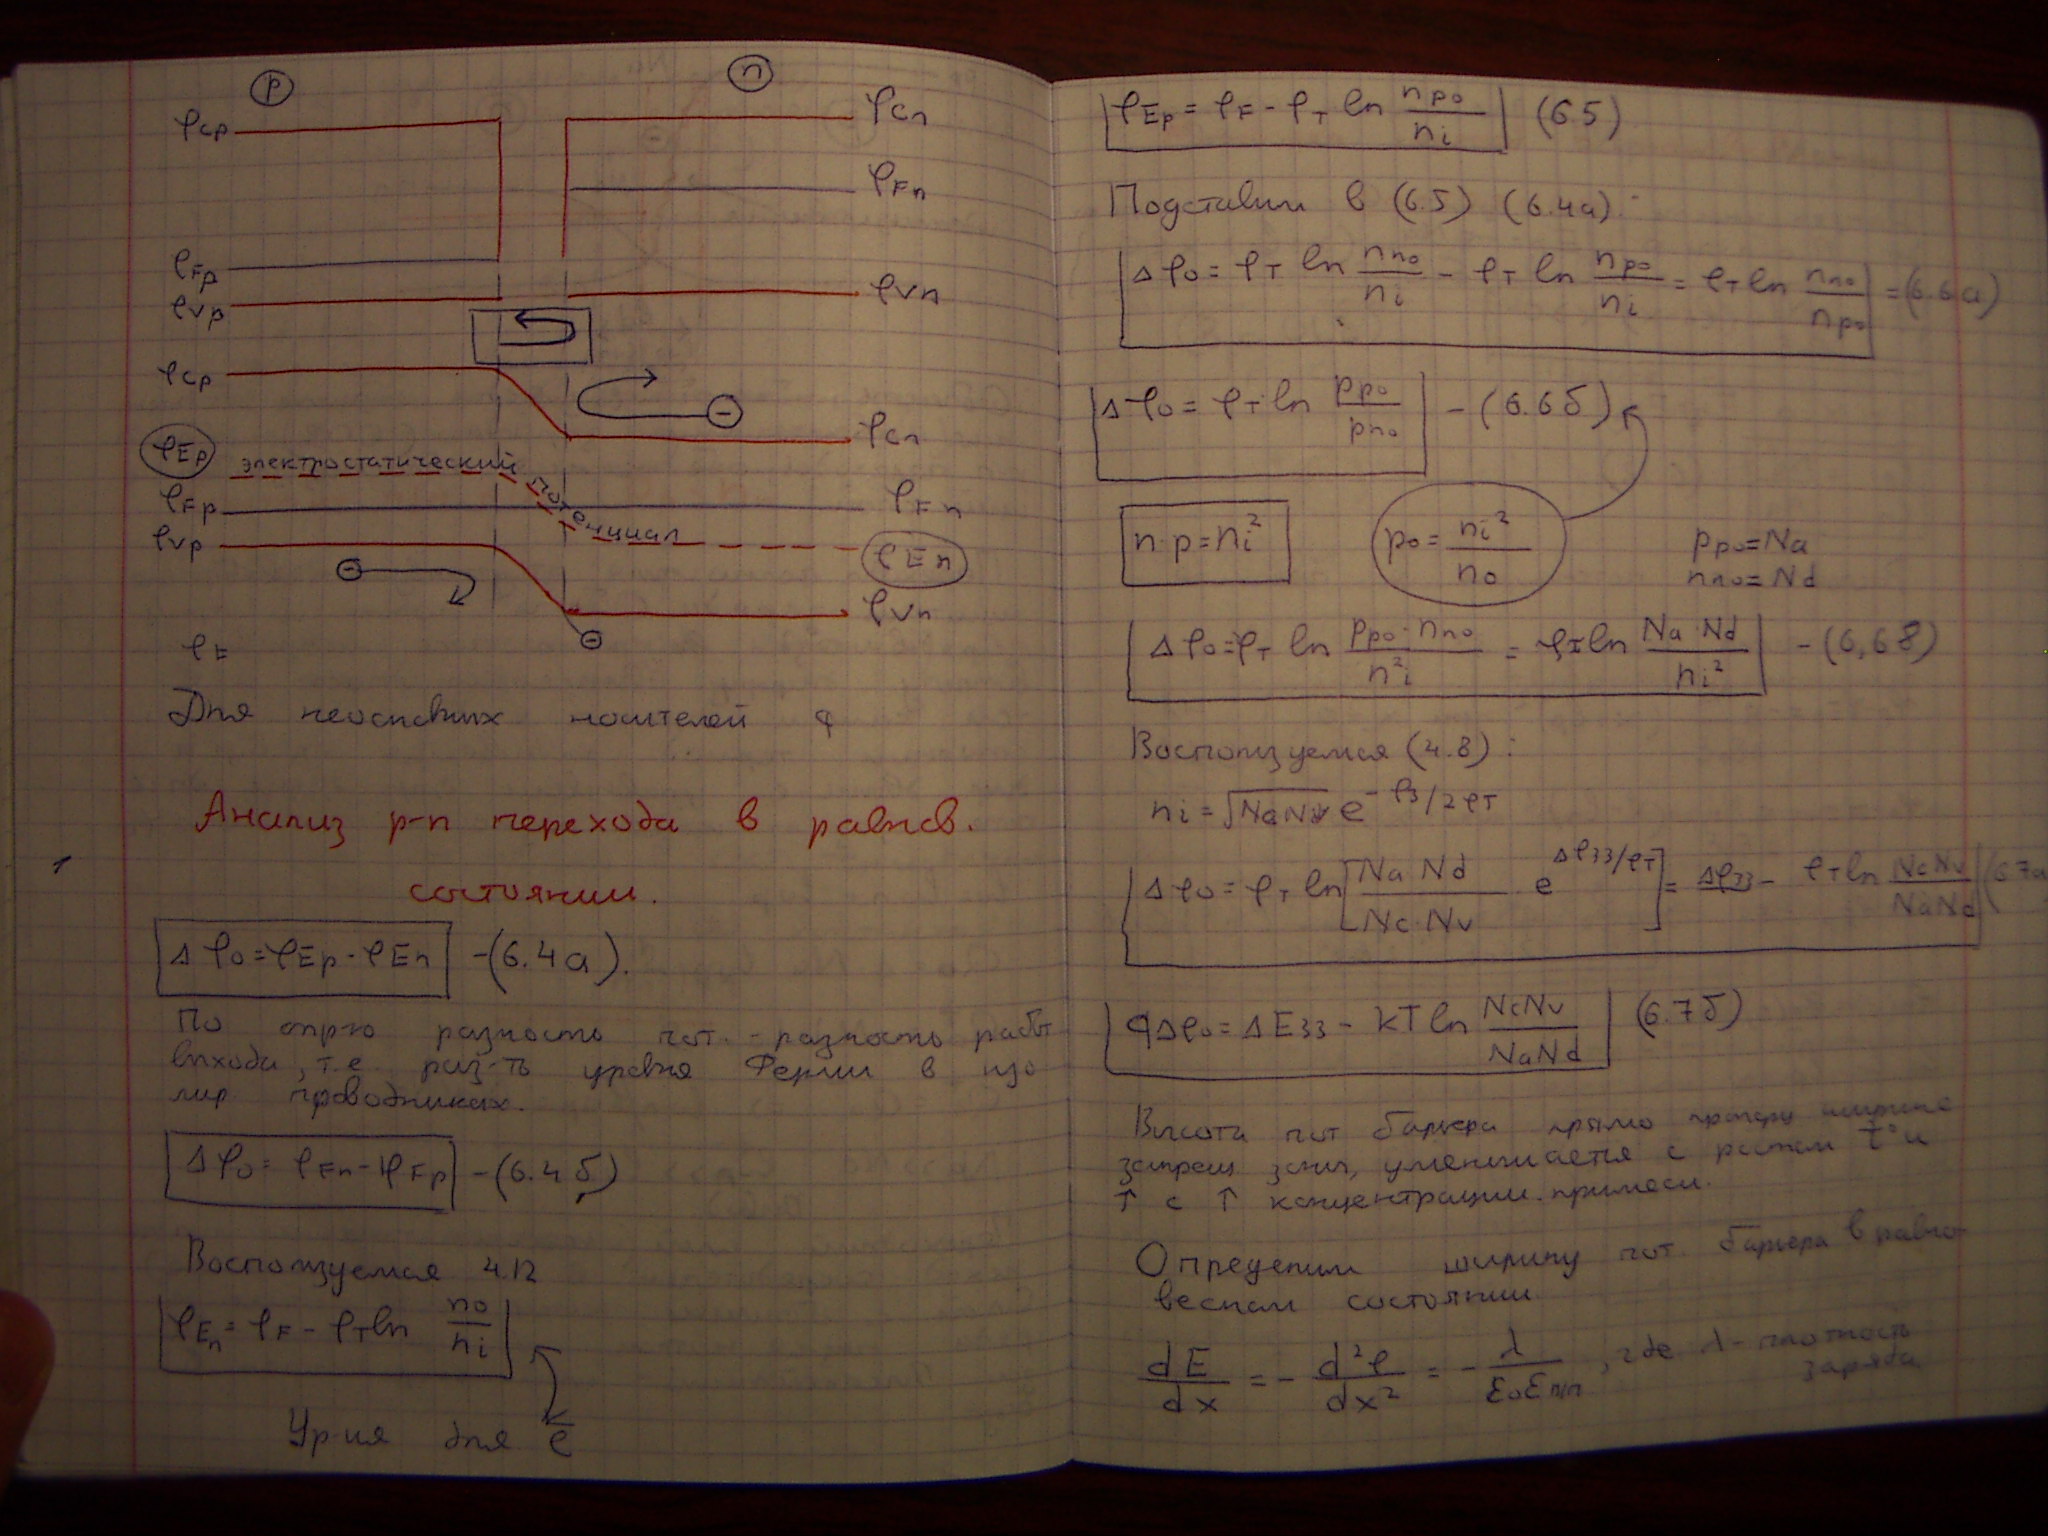 p n
φcp φcn
φFn
φFp
φvp φvn
φcp
φcn
φEp электростатический потенциал
φFp φFn
φvp φEn
φvn
φE
Для неосновных носителей
Анализ p-n перехода в равнов.
состоянии.
Δφ0 = φEp - φEn - (6.4а).
По опр-ю разность пот. - разность работ
выхода, т.е. раз-ть уровня Ферми в изо
лир проводниках.
Δφ0 = φFn - φFp - (6.4б)
Воспользуемся 4.12
φEn = φF - φT ln n0/ni
Ур-ия для e̅
φEp = φF - φT ln np0/ni (6 5)
Подставим в (6.5) (6.4а)
Δφ0 = φT ln nn0/ni - φT ln np0/ni = φT ln nn0/np0 = (6.6а)
Δφ0 = φT ln pp0/pn0 - (6.6б)
n·p = ni² p0 = ni²/n0 pp0 = Na
nn0 = Nd
Δφ0 = φT ln pp0·nn0/ni² = φT ln Na·Nd/ni² - (6,6в)
Воспользуемся (4.8):
ni = √NaNv e^-φз/2φT
Δφ0 = φT ln[Na Nd/Nc·Nv e^Δφзз/φT] = Δφзз - φT ln NcNv/NaNd (6.7а
qΔφ0 = ΔEзз - kT ln NcNv/NaNd (6.7б)
Высота пот барьера прямо пропорц ширине
запрещ зоны, уменьшается с ростом t° и
↑ с ↑ концентрации примеси.
Определим ширину пот барьера в равно-
весном состоянии
dE/dx = - d²φ/dx² = - λ/ε0εпп, где λ - плотность
заряда